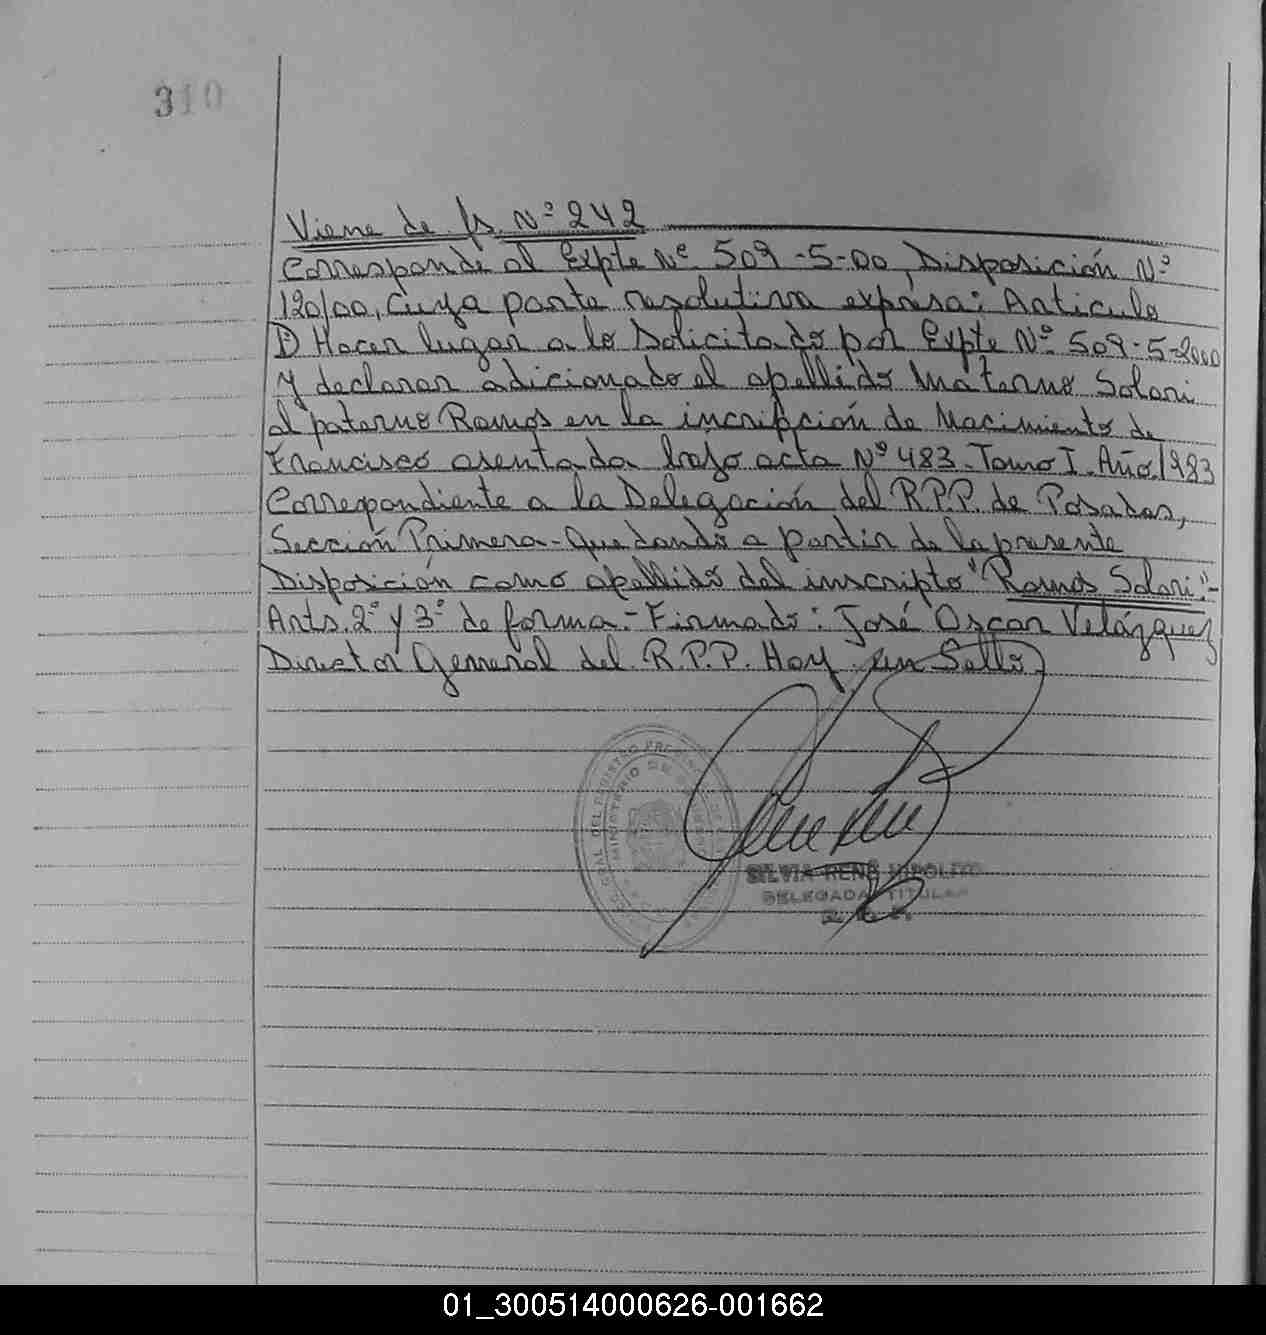 310
Viene de fs. Nº 242
Corresponde al Expte Nº 509-5-00, Disposición Nº
120/00, Cuya parte resolutiva expresa: Articulo
1) Hacer lugar a lo Solicitado por Expte Nº 509-5-2000
y declarar adicionado el apellido materno Solari
al paterno Ramos en la incripción de Nacimiento de
Francisco asentada bajo acta Nº 483-Tomo I-Año 1983
Correspondiente a la Delegación del R.P.P. de Posadas,
Sección Primera-Quedando a partir de la presente
Disposición como apellido del inscripto "Ramos Solari".-
Arts. 2º y 3º de forma.- Firmado: José Oscar Velázquez
Director General del R.P.P. Hoy un Sello
SILVIA RENÉ HIPOLITO
DELEGADA TITULAR
01_300514000626-001662